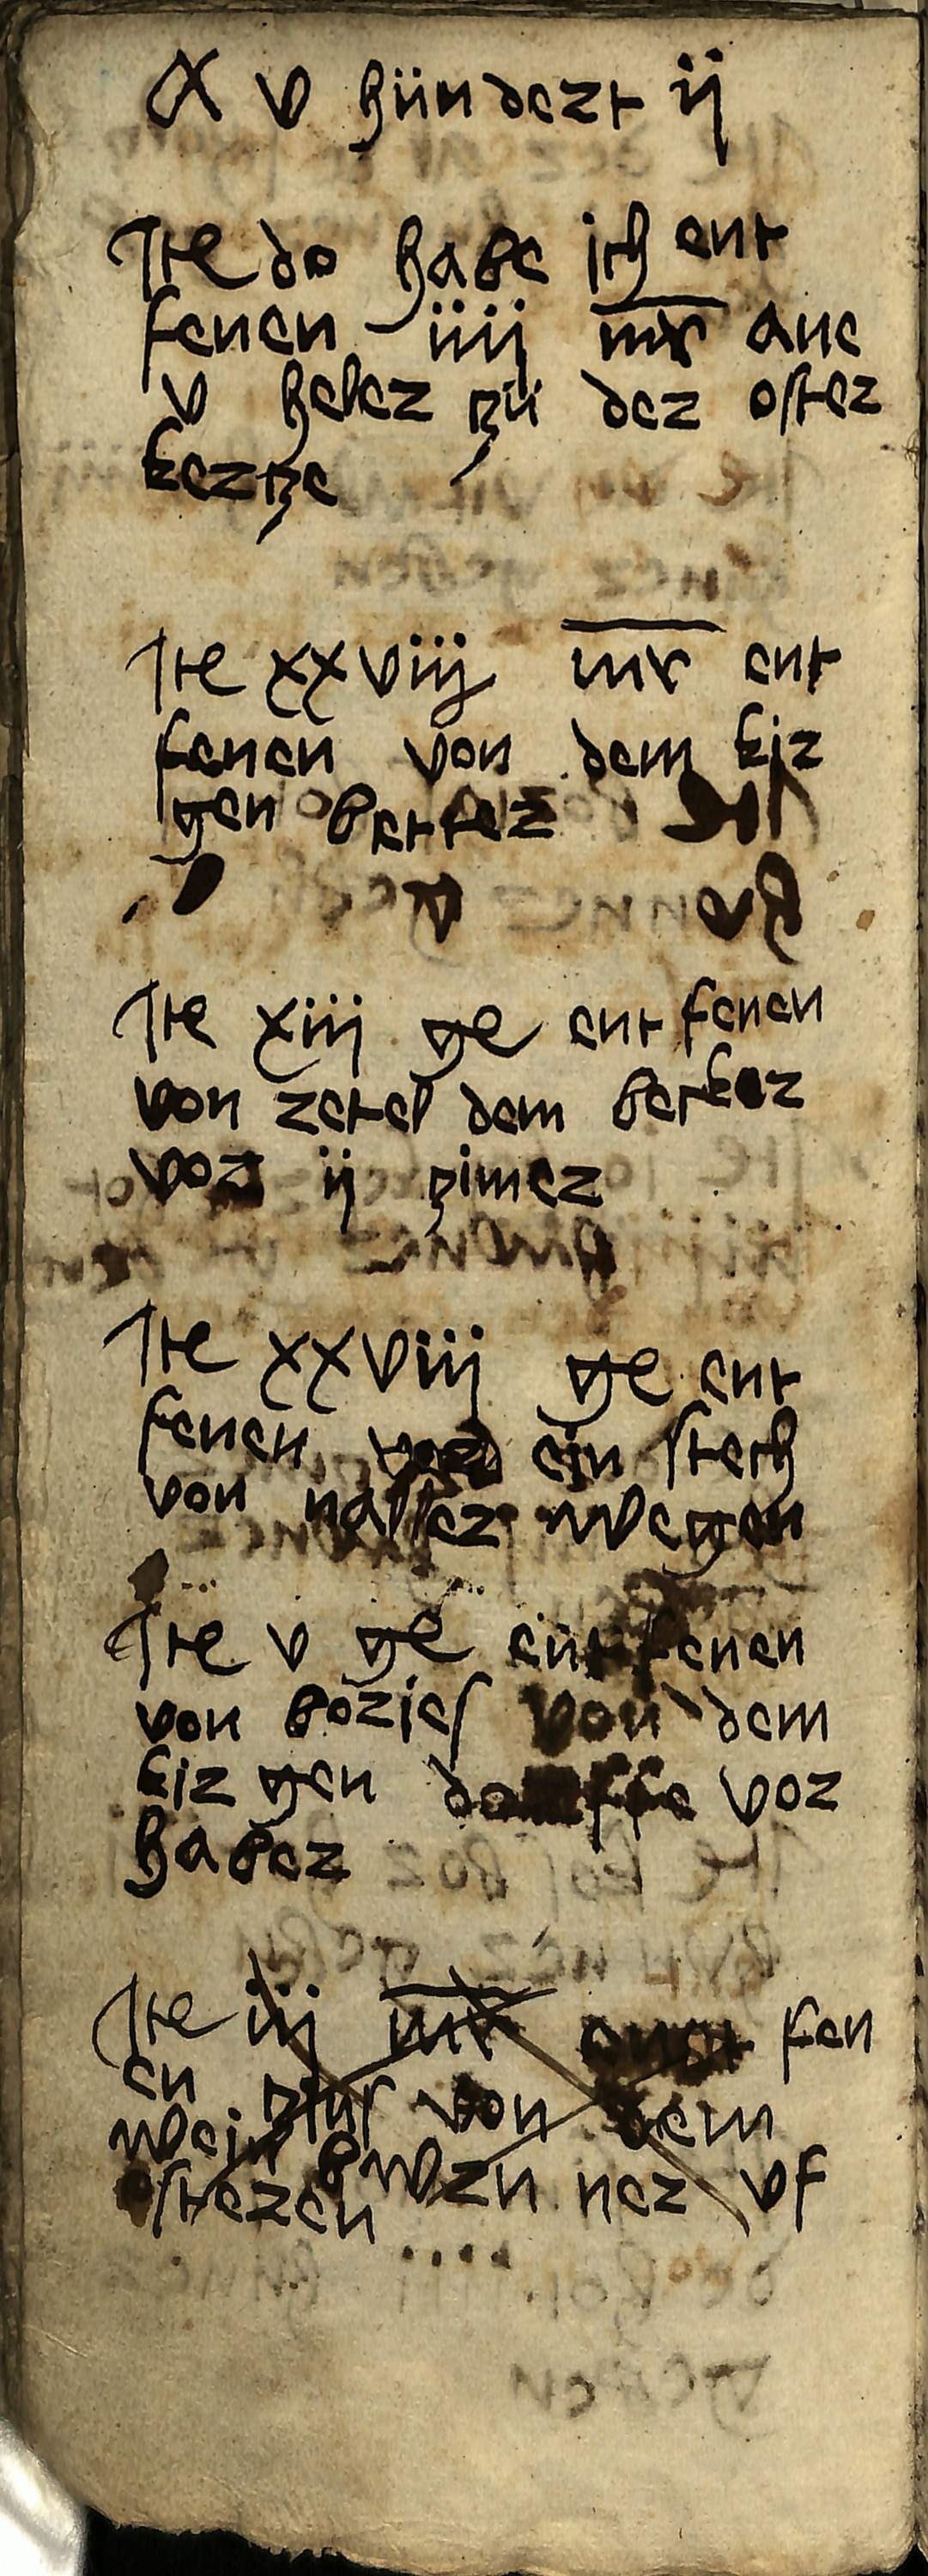 X v hündert ij
Ite do habe ich ent
fenen iiij mr ane
v heler zü der oster
kerze
Ite xxviij mr ent
fenen von dem kir
gen better
Ite xiij ge entfenen
von zetel dem becker
vor ij zimer
Ite xxviij ge ent
fenen vor ein stech
von nasser wegen
Ite v ge entfenen
von bories von dem
kir gen vor
haber
Ite iij mr fen
en zins von dem
wein ner vf
osteren